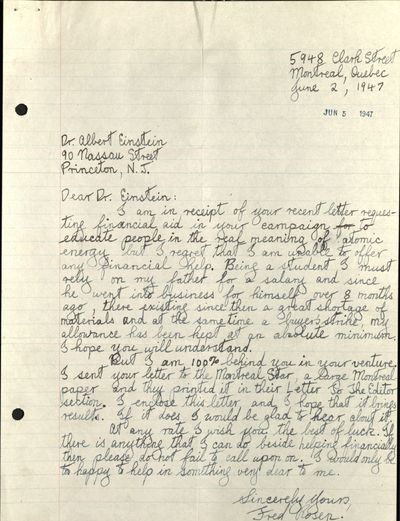 5948 Clark Street
Montreal, Quebec
June 2, 1947
JUN 5 1947
Dr. Albert Einstein
90 Nassau Street
Princeton, N.J.
Dear Dr. Einstein:
I am in receipt of your recent letter reques-
ting financial aid in your campaign for to
educate people in the real meaning of atomic
energy, but I regret that I am unable to offer
any financial help. Being a student I must
rely on my father for a salary and since
he went into business for himself over 8 months
ago, there existing since then a great shortage of
materials and at the same time a buyers strike, my
allowance has been kept at an absolute minimum.
I hope you will understand.
But I am 100% behind you in your venture.
I sent your letter to the Montreal Star a large Montreal
paper and they printed it in their Letter To The Editor
section. I enclose this letter, and I hope that it brings
results. If it does I would be glad to hear about it.
At any rate I wish you the best of luck. If
there is anything that I can do beside helping financially
then please do not fail to call upon me. I would only be
to happy to help in something very dear to me.
Sincerely Yours,
Fred Rosen.